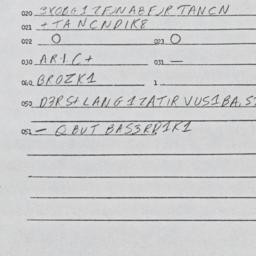 020 3XOBG1ZFJNABFJR TANCN
021 + TANCNDIK8
022 O 023 O
030 ARIC+ 031 —
040 BROZK1 1
050 D3RS+LANG1ZATIR VUS1BA,S
051 — QBUT BAS3RD1K1